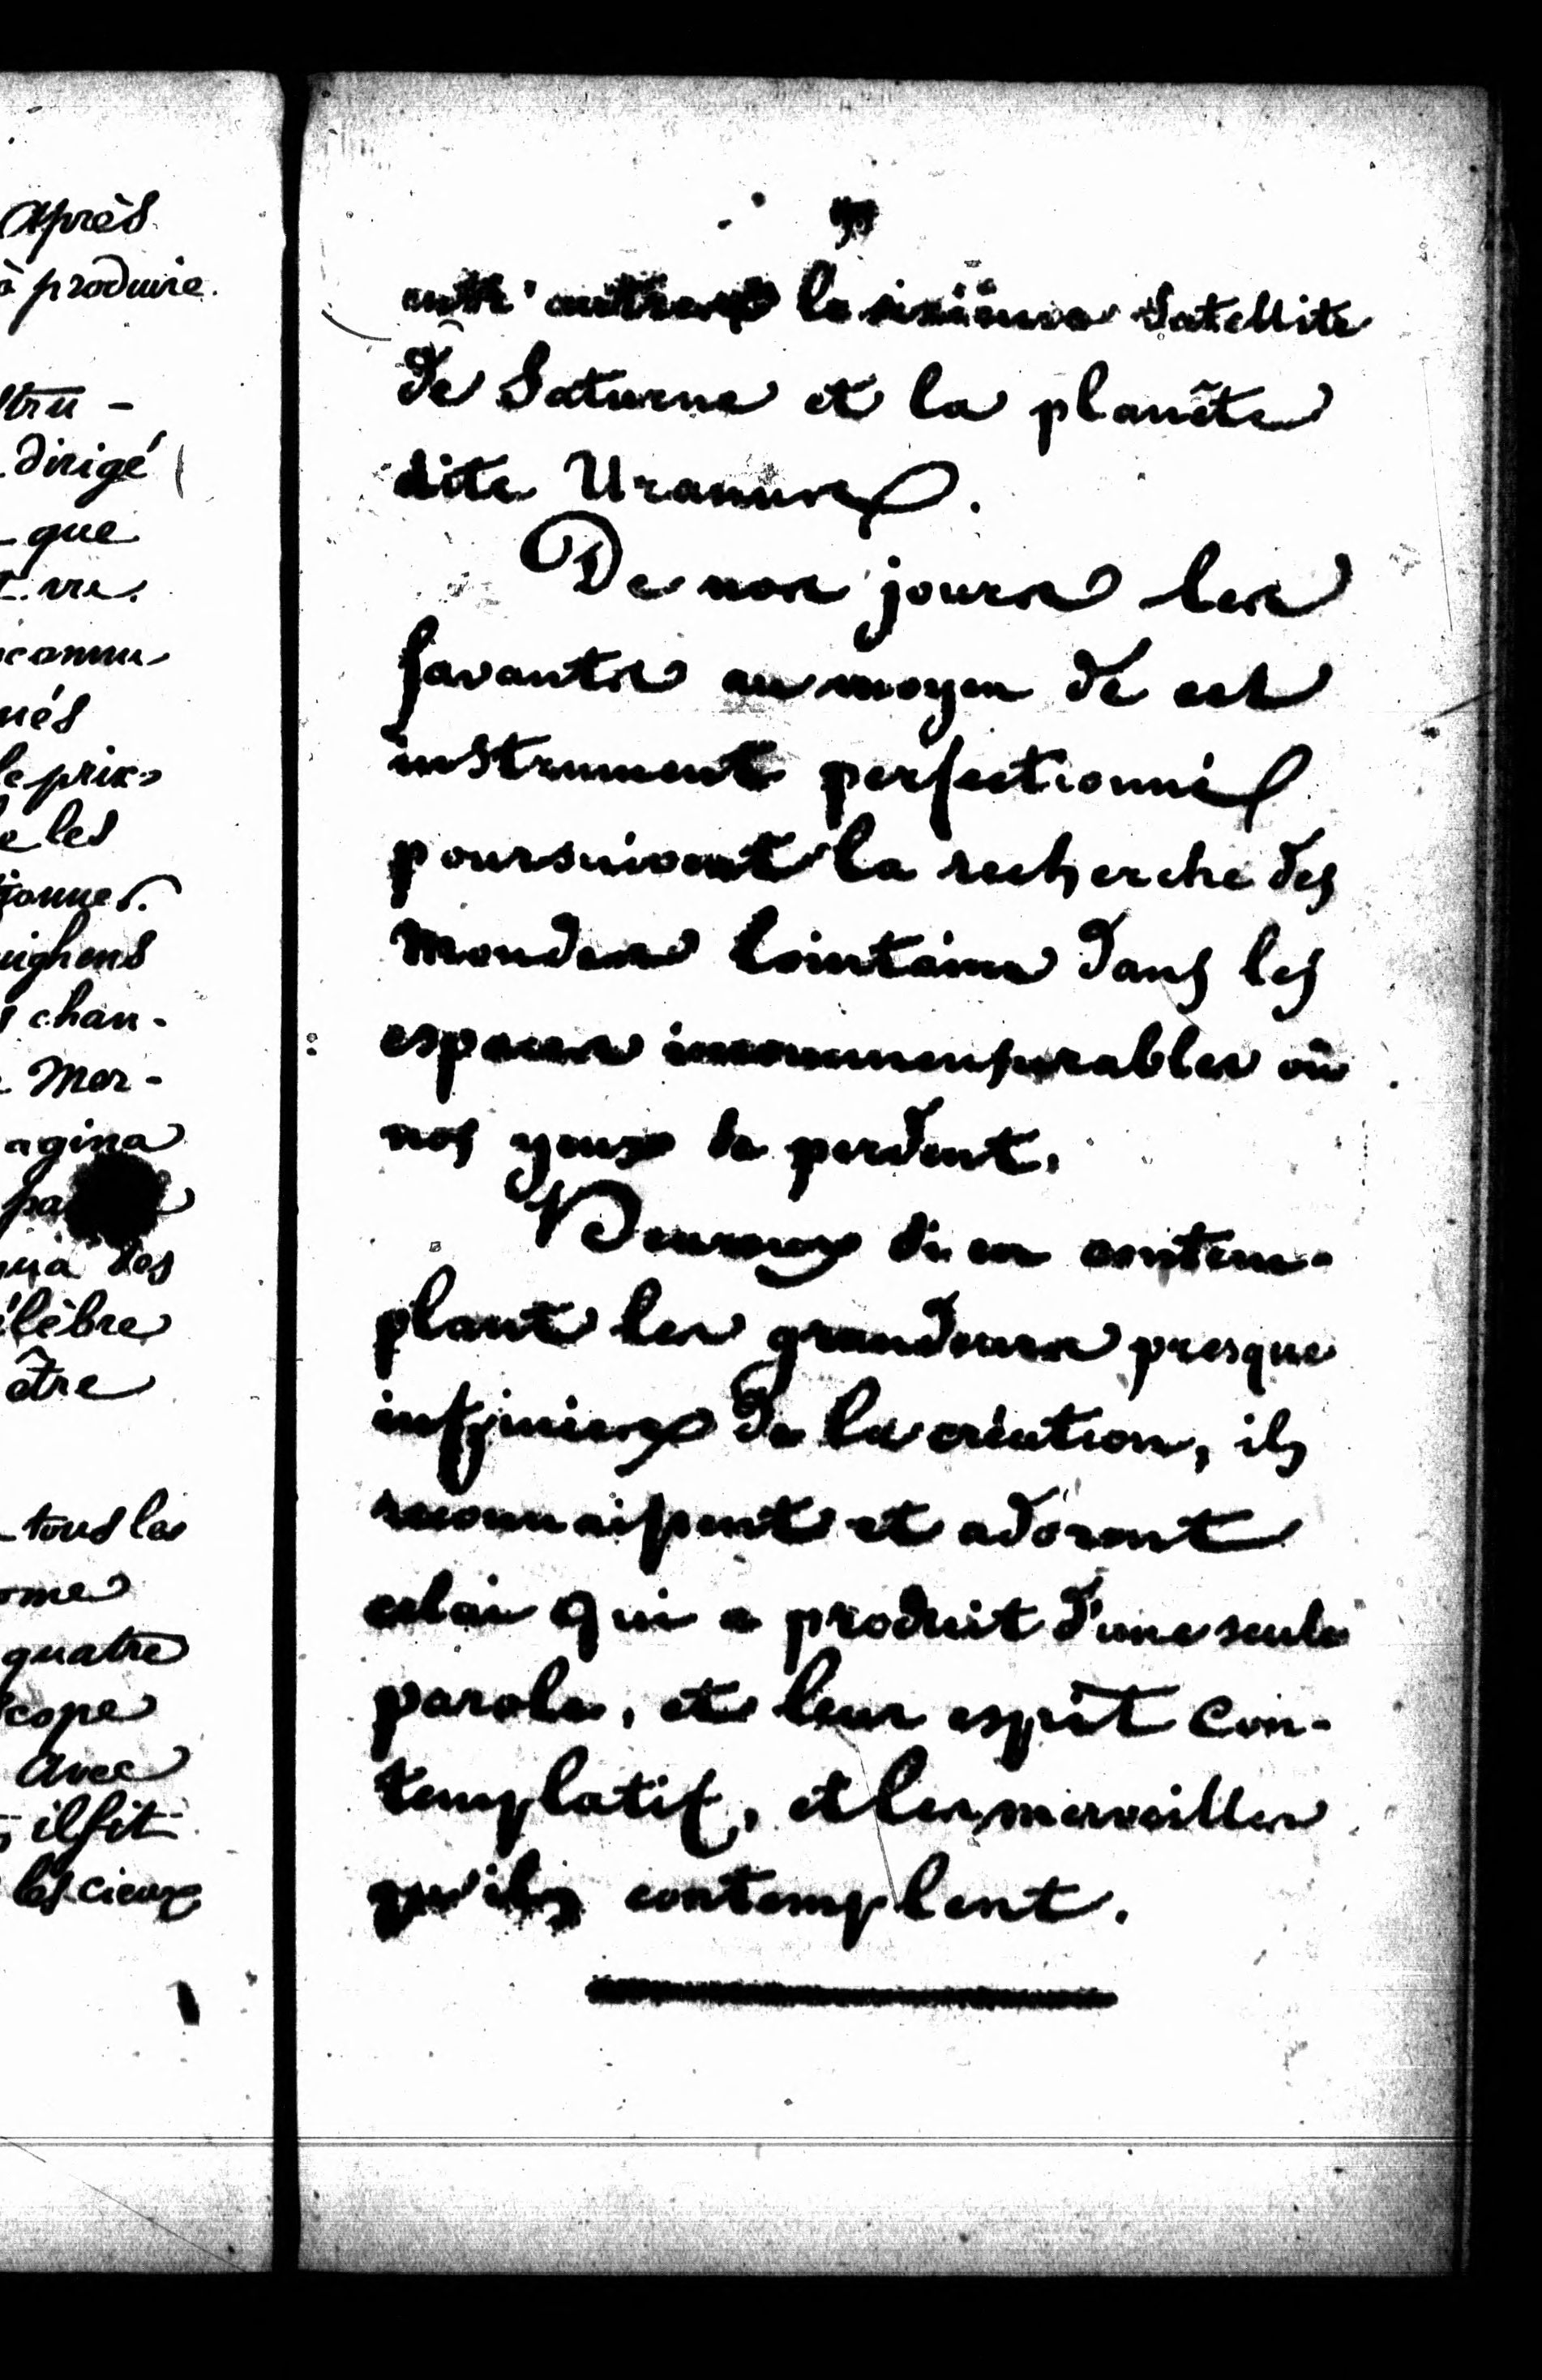 après
à produire.
tru-
dirigé
que
t vu.
connu
nés
le prix
e les
uighens
s chan-
Mer-
agina
pa
des
élèbre
être
tous les
ome
quatre
cope
avec
il fit
les cieux
entr'autres le sixième satellite
de Saturne et la planète
dite Uranus.
De nos jours les
savants au moyen de cet
instrument perfectionné
poursuivent la recherche des
mondes lointains dans les
espaces incommensurables où
nos yeux se perdent.
Heureux si en contem-
plant les grandeurs presque
infinies de la création, ils
reconnaissent et adorent
celui qui a produit d'une seule
parole, et leur esprit con-
templatif, et les merveilles
qu'ils contemplent.